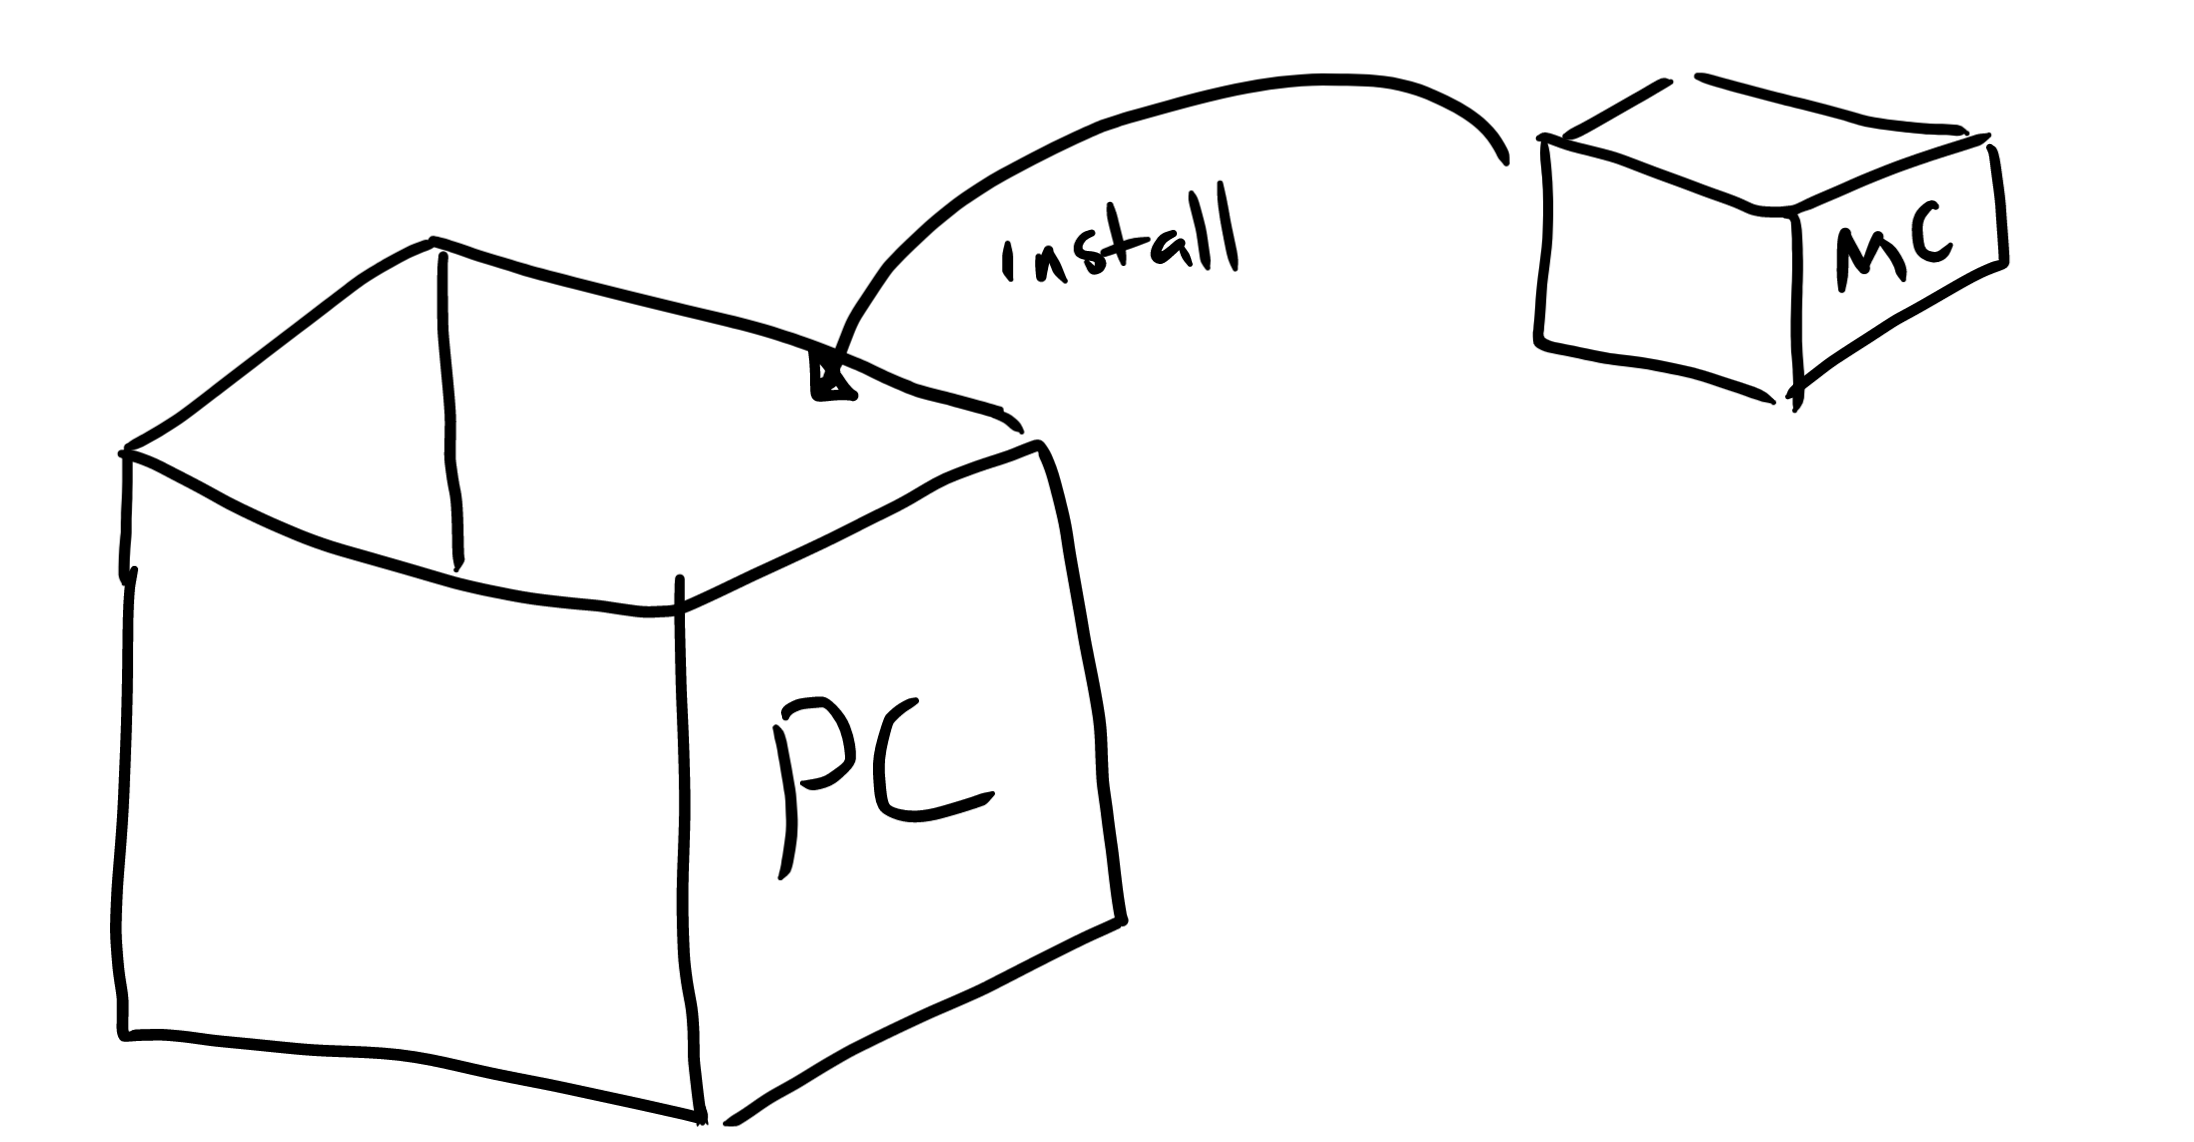 install
MC
PC